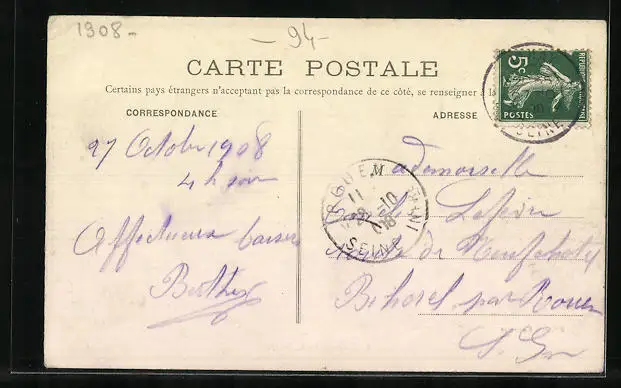 1908-
- 94-
CARTE POSTALE
Certains pays étrangers n'acceptant pas la correspondance de ce côté, se renseigner à la
CORRESPONDANCE
ADRESSE
5c
POSTES
SEINE
27 Octobre 1908
4h soir
Affectueux baisers
Berthe
11
27-10
08
SEINE
Mademoiselle
de Neufchatel
Bihorel par Rouen